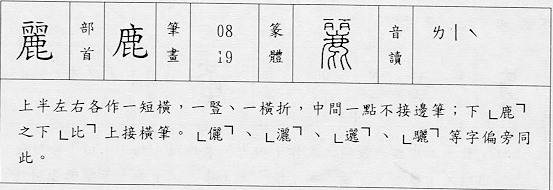 麗 部首 鹿 筆畫 08 19 篆體 麗 音讀 ㄌㄧˋ
上半左右各作一短橫,一豎、一橫折,中間一點不接邊筆;下「鹿」
之下「比」上接橫筆。「儷」、「灑」、「邐」、「驪」等字偏旁同
此。